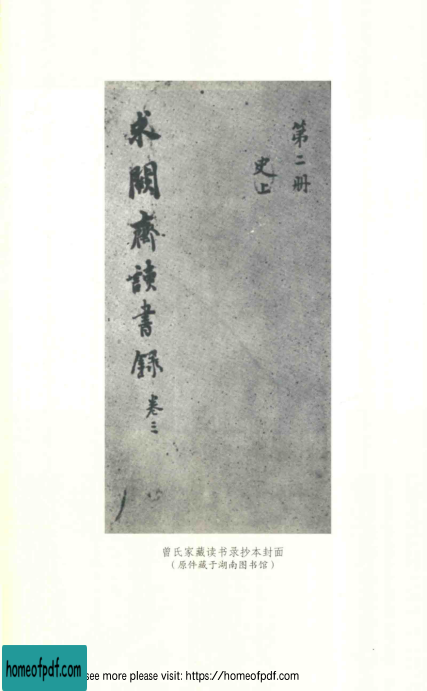 第二册
史上
求闕齋讀書録 卷三
曾氏家藏读书录抄本封面
（原件藏于湖南图书馆）
homeofpdf.com
see more please visit: https://homeofpdf.com